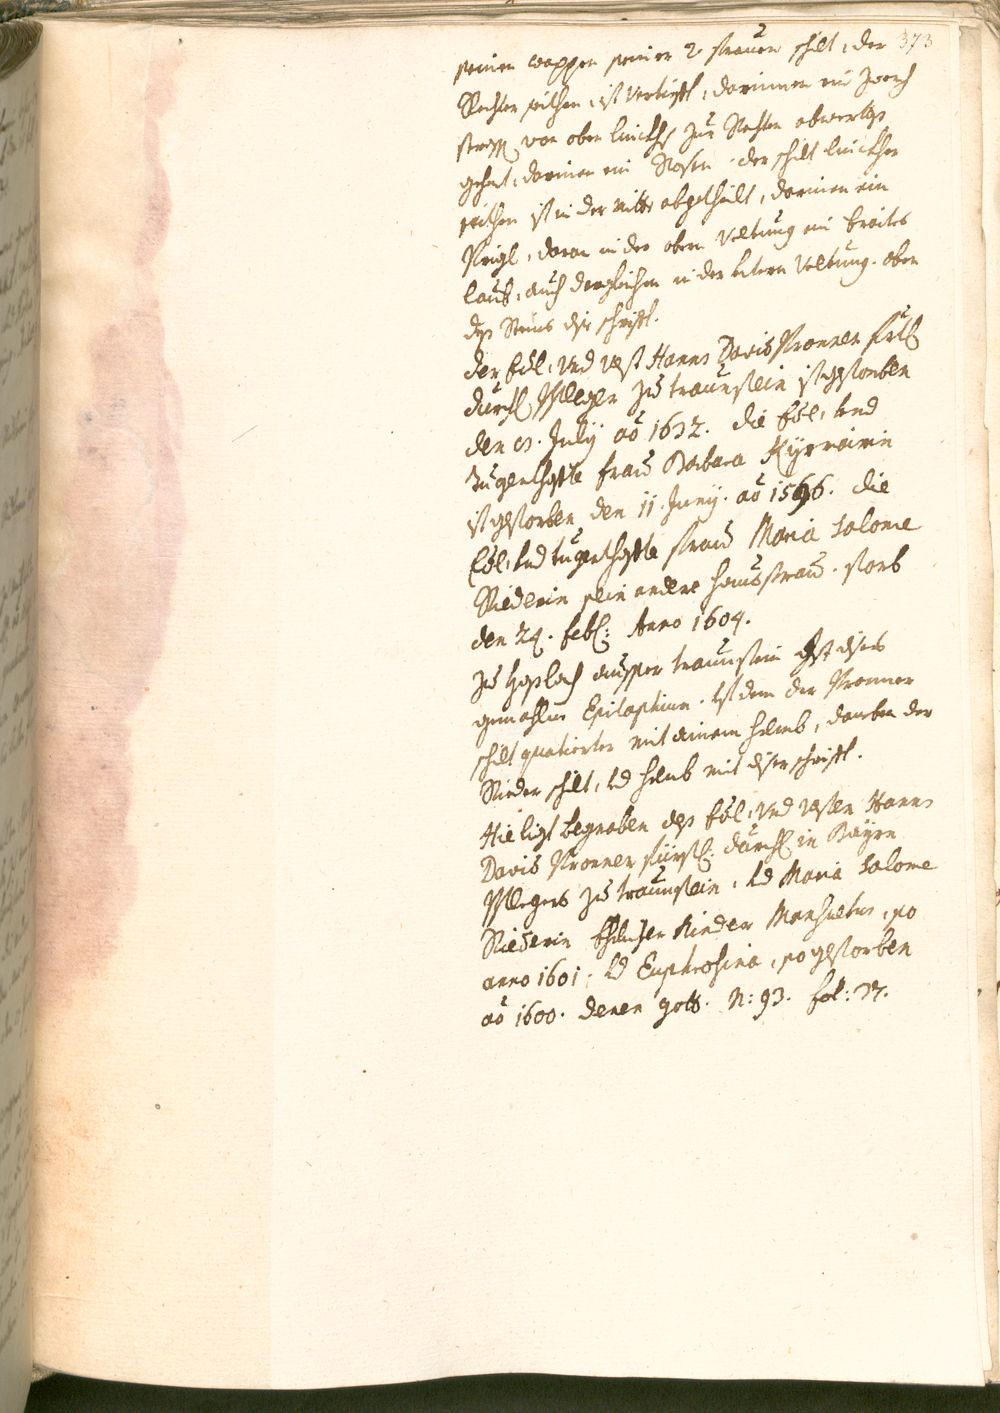 373
seinen wappen seiner 2 frauen schilt, der
Rechten seithen, ist Vertieft, darinnen ein zwerch
straiff von oben linckhs zur Rechten abwerths
gehent, darinen ein Rosen. der schilt linckher
seithen ist in der mitte abgetheilt, darinen ein
Krigl, daran in der obern Veltung ein braites
laub, auch dergleichen in der untern Veltung. oben
deß Steins dise schrifft.
der Edl, Vnd Vest Hanns Davis Pronner fürstl
durchl Pfleger zu traunstein ist gestorben
den . July aō 1632. die Edl, Vnd
tugenthaffte fraw Barbara
ist gestorben den 11. Juny. aō 1596. die
Edl, Vnd tugenthaffte fraw Maria Salome
Riederin sein andere haußfraw. starb
den 24. febr: Anno 1604.
zu Haßlach ausser traunstein ist dises
gemahlne Epitaphium. Ist dem der Pronner
schilt quatierter mit ainem helmb, daneben der
Rieder schilt, Vd helmb mit diser schrifft.
Hie ligt begraben deß Edl, Vnd Vesten Hanns
Davis Pronner fürstl: durchl in Bayrn
Pflegers zu traunstein, Vd Maria Salome
Riederin Ehelicher Kinder Mansuetus, so
anno 1601. Vd Euphrosina, so gestorben
aō 1600. denen gott. N: 93. fol: 37.